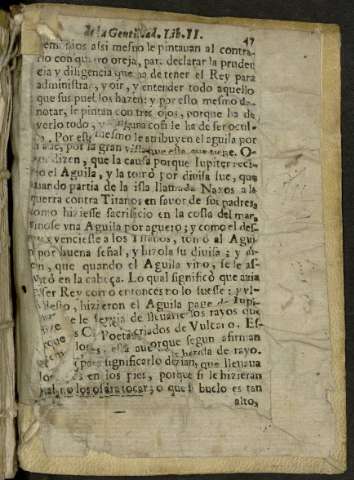 de la Gentilidad. Lib. II. 47
assi mesmo le pintauan al contra-
rio con quatro oreja, para declarar la pruden
cia y diligencia que ha de tener el Rey para
administrar, y oir, y entender todo aquello
que sus pueblos hazen: y por esto mesmo de-
notar, le pintan con tres ojos, porque ha de
verlo todo, y alguna cosa le ha de ser ocul-
Por este mesmo le atribuyen el aguila por
por la gran vista que esta aue tiene. O-
dizen, que la causa porque Iupiter reci-
io el Aguila, y la tomó por diuisa fue, que
quando partia de la isla llamada Naxos a la
guerra contra Titanos en fauor de sus padres,
como hiziesse sacrificio en la costa del mar,
vinose vna Aguila por aguero; y como el des-
y venciesse a los Titanos, tomó al Agui
por buena señal, y hizola su diuisa; y
que quando el Aguila vino, se le as-
en la cabeça. Lo qual significó que auia
ser Rey como entonces no lo fuesse: y
hizieron el Aguila page de Iupi-
le seruia de lleuarle los rayos que
criados de Vulcano. Es-
aue porque segun afirman
herida de rayo.
para significarlo dezian, que lleuaua
en los pies, porque si le hizieran
mal, no los osara tocar; o que su buelo es tan
alto,